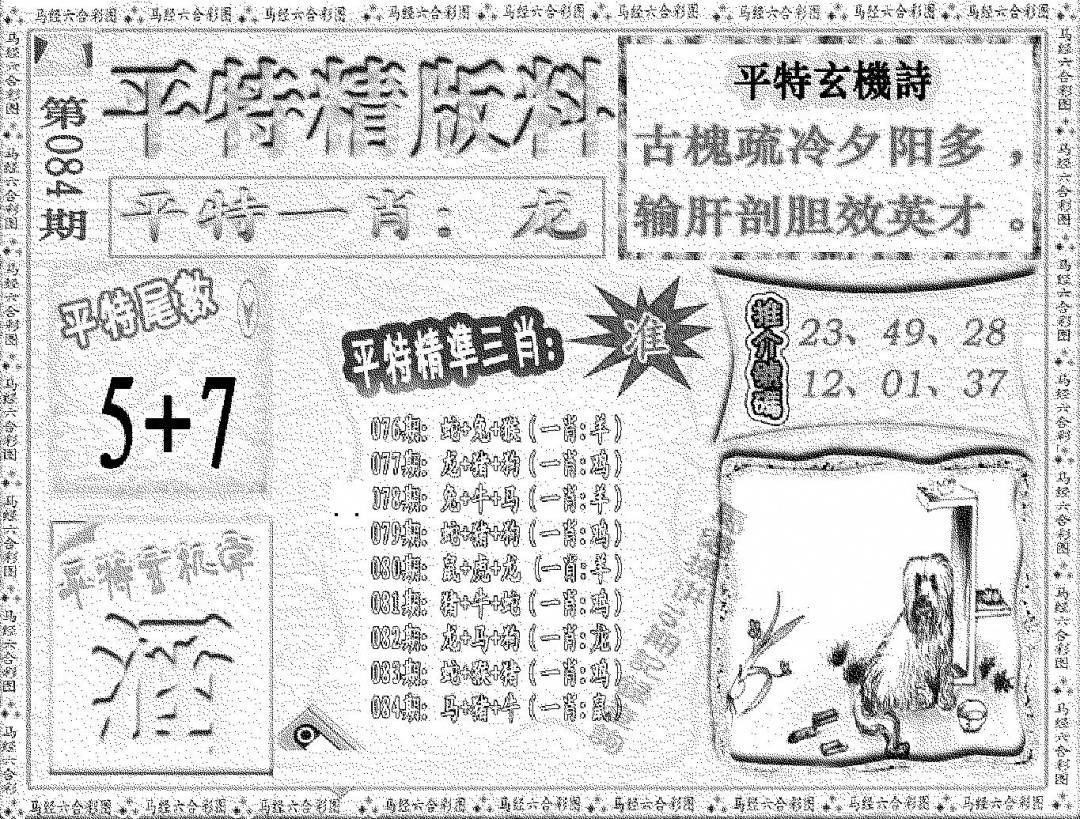 马经六合彩图 马经六合彩图 马经六合彩图 马经六合彩图 马经六合彩图 马经六合彩图 马经六合彩图 马经六合彩图 马经六合彩图
第084期
平特精版料
平特一肖：龙
平特玄機詩
古槐疏冷夕阳多，
输肝剖胆效英才。
平特尾数
5+7
平特精準三肖:
准
推介號碼
23、49、28
12、01、37
076期: 蛇+兔+猴(一肖:羊)
077期: 龙+猪+狗(一肖:鸡)
078期: 兔+牛+马(一肖:羊)
079期: 蛇+猪+狗(一肖:鸡)
080期: 鼠+虎+龙(一肖:羊)
081期: 猪+牛+蛇(一肖:鸡)
082期: 龙+马+狗(一肖:龙)
083期: 蛇+猴+猪(一肖:鸡)
084期: 马+猪+牛(一肖:鼠)
平特玄机字
马经六合彩图 马经六合彩图 马经六合彩图 马经六合彩图 马经六合彩图 马经六合彩图 马经六合彩图 马经六合彩图 马经六合彩图